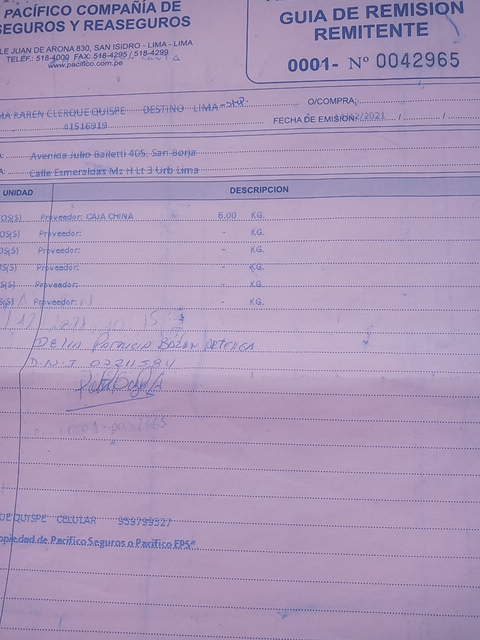 PACÍFICO COMPAÑÍA DE
SEGUROS Y REASEGUROS
LE JUAN DE ARONA 830, SAN ISIDRO - LIMA - LIMA
TELEF.: 518-4000 FAX: 518-4295 / 518-4299
www.pacifico.com.pe
GUIA DE REMISION
REMITENTE
0001- Nº 0042965
MA KAREN CLERQUE QUISPE DESTINO LIMA
41516919
O/COMPRA:
FECHA DE EMISIÓN: /02/2021
Avenida Julio Bailetti 405, San Borja
Calle Esmeraldas Mz H Lt 3 Urb Lima
UNIDAD DESCRIPCION
OS(S) Proveedor: CAJA CHINA 6.00 KG.
OS(S) Proveedor: - KG.
OS(S) Proveedor: - KG.
S(S) Proveedor: - KG.
S(S) Proveedor: - KG.
S(S) Proveedor: - KG.
DELIA PATRICIA BAZAN
D.N.I
0001-0042965
QUISPE CELULAR 959799527
opiedad de Pacífico Seguros o Pacífico EPS"